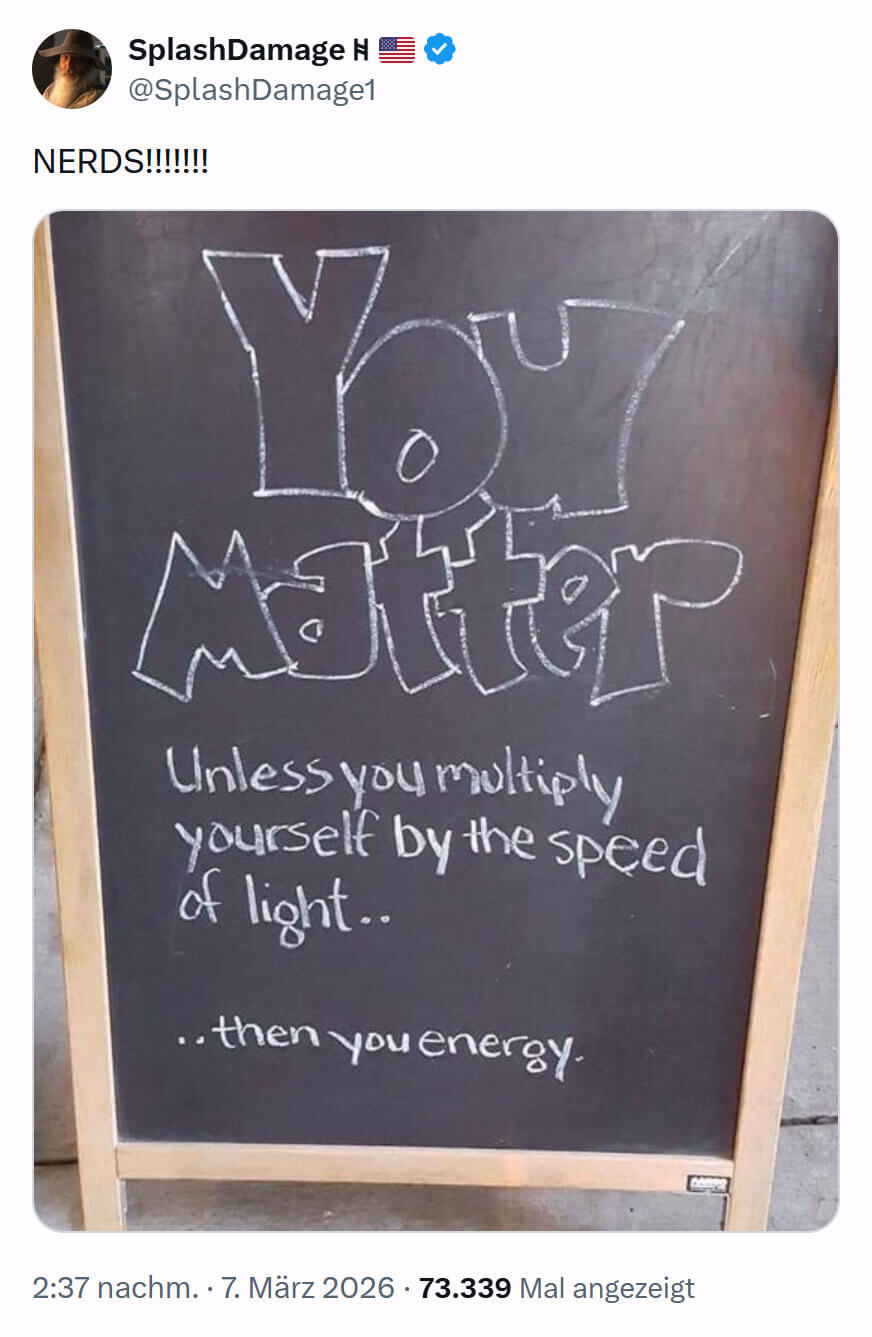 SplashDamage 🇺🇸
@SplashDamage1
NERDS!!!!!!!
You
Matter
Unless you multiply
yourself by the speed
of light..
..then you energy.
2:37 nachm. · 7. März 2026 · 73.339 Mal angezeigt